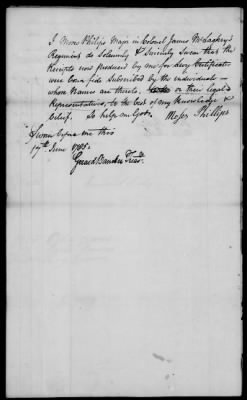 I Moses Phillips Major in Colonel James McClaghry's
Regiment do Solemnly & Sincerely Swear that the
Receipts now produced by me for Levy Certificates
were bona fide subscribed by the individuals
whose Names are thereto. or their legal
Representatives, to the best of my Knowledge &
belief. So help me God.
Moses Phillips
Sworn before me this
17th June 1785.
Gerard Bancker Treasr.